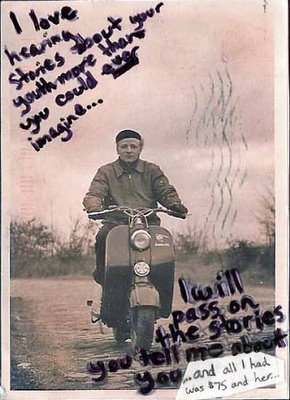 I love
hearing
stories about your
youth more than
you could ever
imagine...
I will
pass on
the stories
you tell me about
you
...and all I had
was $75 and her...